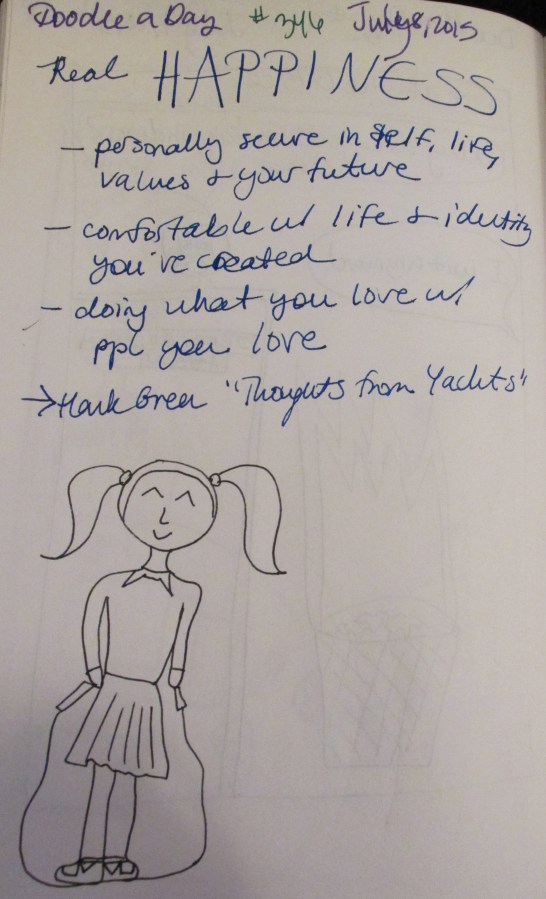 Doodle a Day #346 July 8, 2015
Real HAPPINESS
- personally secure in self, life,
values & your future
- comfortable w/ life & identity
you've created
- doing what you love w/
ppl you love
→ Hank Green "Thoughts from Yachts"